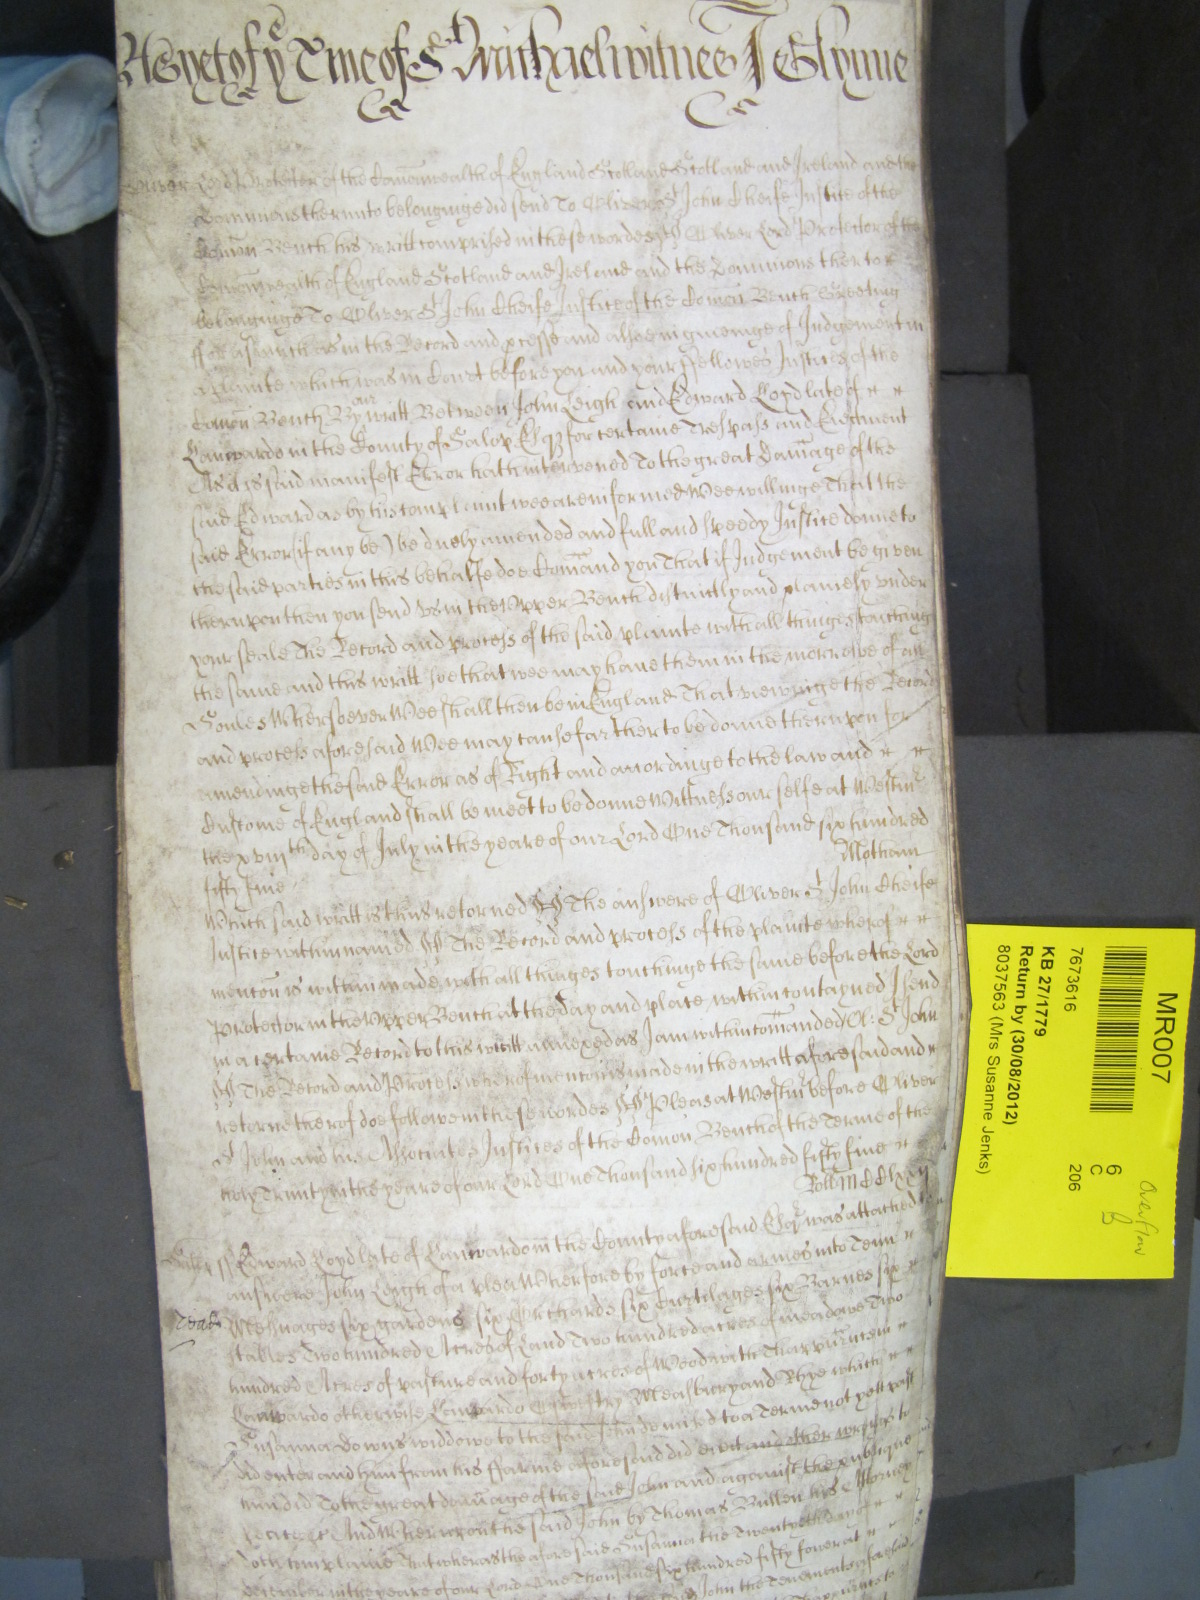 As yet of ye Terme of St Michael witnes J Glynne
Oliver Lord Protector of the Comonwealth of England Scotland and Ireland and the
Dominions therunto belonginge did send To Oliver St John Cheife Justice of the
Comon Bench his writt comprised in these wordes ss Oliver Lord Protector of the
Comonwealth of England Scotland and Ireland and the Dominions therto
belonginge To Oliver St John Cheife Justice of the Comon Bench Greeting
fforasmuch as in the Record and pcesse and alsoe in giveinge of Judgement in
a plainte which was in Court before you and your ffellowes Justices of the
Comon Bench By our writt Between John Leigh and Edward Loyd late of
Llanvarda in the County of Salop Esqr for certaine Trespass and Eiectment
As it is said manifest Error hath intervened To the great Damage of the
said Edward as by his complaint wee are informed Wee willinge That the
said Error (if any be) be duely amended and full and speedy Justice donne to
the said parties in this behalfe doe Comand you That if Judgement be given
therupon then you send Us in the Upper Bench distinctly and plainely under
your seale The Record and process of the said plainte with all thinges touching
the same and this writt soe that wee may have them in the morrowe of all
Soules Whersoever Wee shall then be in England That viewinge the Record
and process aforesaid Wee may cause farther to be donne therupon for
amendinge the said Error as of Right and accordinge to the law and
Custome of England shall be meet to be donne Wittness our selfe at Westmr
the xviiith day of July in the yeare of our Lord One Thousand six hundred
fifty five
Motham
Which said writt is thus returned ss The answere of Oliver St John Cheife
Justice within named ss The Record and process of the plainte wherof
mencon is within made with all thinges touchinge the same before the Lord
Protector in the Upper Bench at the day and place within contayned I send
in a certaine Record to this writt annexed as I am within comanded O: St John
ss The Record and Process wherof mencon is made in the writt aforesaid and
returne therof doe followe in these wordes ss Pleas at Westmr before Oliver
St John and his Associates Justices of the Comon Bench of the Terme of the
holy Trinity in the yeare of our Lord One Thousand six hundred fifty five
Roll
Salop ss Edward Loyd late of Llanvarda in the County aforesaid Esqr was attached
answere John Leigh of a plea Wherfore by force and armes into Tenn
Messuages six gardens six Orchards six Curtilages six Barnes six
stables Two hundred Acres of Land Two hundred acres of meadowe Two
hundred Acres of pasture and forty acres of Wood with Thappurtences in
Llanvarda otherwise Llanvardo Oswestry Measbury and Rhye which
Susanna Downs widdowe to the said John demised to a Terme not yett past
did enter and him from his ffarme aforesaid did eject and other wrongs to
him did To the great damage of the said John and against the publique
peace &c And Wherupon the said John by Thomas Bullen his Attorney
doth complaine That wheras the aforesaid Susanna the Twentyeth day of
December in the yeare of our Lord One Thousand six hundred fifty fower at
John the Tenements aforesaid
MR007
7673616
6
C
206
KB 27/1779
Return by (30/08/2012)
8037563 (Mrs Susanne Jenks)
Overflow
B